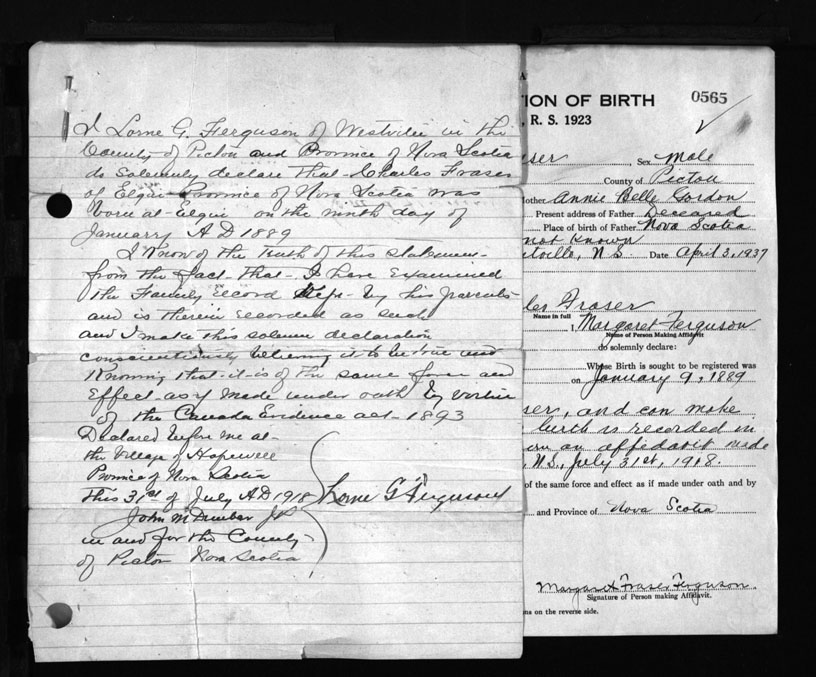 I Lorne G. Ferguson of Westville in the
County of Pictou and Province of Nova Scotia
do Solemnly declare that Charles Fraser
of Elgin Province of Nova Scotia was
born at Elgin on the ninth day of
Janurary A D 1889
I Know of the Truth of this statement
from the fact that I have examined
the Family Record Kept by his parents
and is therein recorded as such
and I make this solemn declaration
conscientiously believing it to be true and
Knowing that it is of the same force and
Effect as if made under oath by virtue
of the Canada Evidence act 1893
Declared before me at
the Village of Hopewell
Province of Nova Scotia
This 31st of July A D 1918
John M Dunbar J P
in and for the County
of Pictou Nova Scotia
Lorne G Ferguson
TION OF BIRTH 0565
R. S. 1923
ser Sex Male
County of Pictou
Mother Annie Belle Gordon
Present address of Father Deceased
Place of birth of Father Nova Scotia
not Known
tville, N.S. Date April 3, 1937
les Fraser
Name in full
I, Margaret Ferguson
Name of Person Making Affidavit
do solemnly declare:
Whose Birth is sought to be registered was
on January 9, 1889
ser, and can make
birth is recorded in
an affidavit made
, N.S., July 31st, 1918.
of the same force and effect as if made under oath and by
and Province of Nova Scotia
Margaret Fraser Ferguson
Signature of Person making Affidavit.
ns on the reverse side.